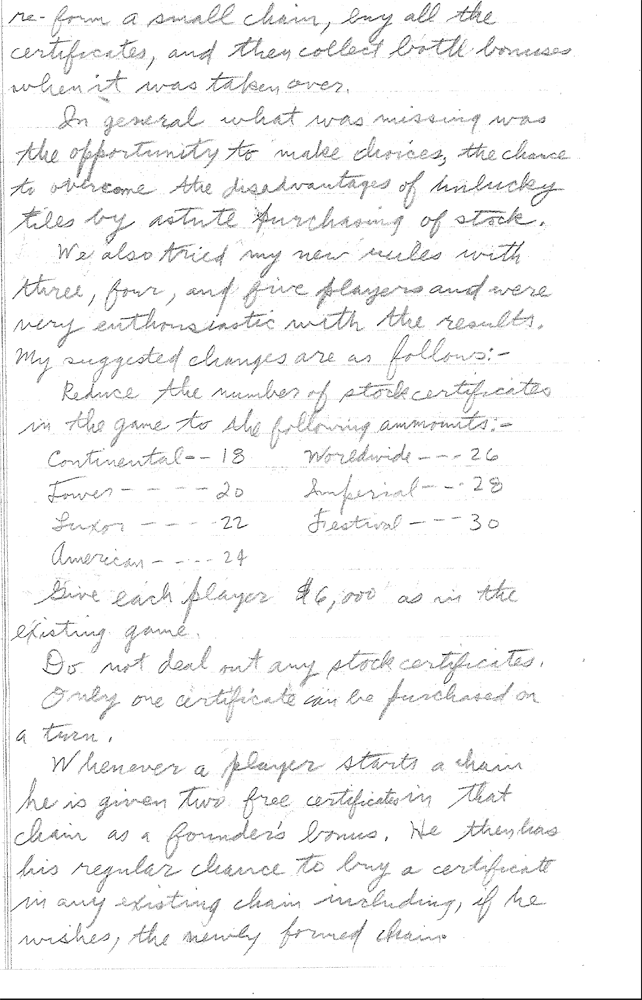 re-form a small chain, buy all the
certificates, and then collect both bonuses
when it was taken over.
In general what was missing was
the opportunity to make choices, the chance
to overcome the disadvantages of unlucky
tiles by astute purchasing of stock.
We also tried my new rules with
three, four, and five players and were
very enthousiastic with the results.
My suggested changes are as follows:-
Reduce the number of stock certificates
in the game to the following ammounts:-
Continental -- 18 Worldwide --- 26
Tower - - - - 20 Imperial -- - 28
Luxor - - - - 22 Festival --- 30
American - - -- 24
Give each player $6,000 as in the
existing game.
Do not deal out any stock certificates.
Only one certificate can be purchased on
a turn.
Whenever a player starts a chain
he is given two free certificates in that
chain as a founders bonus. He then has
his regular chance to buy a certificate
in any existing chain including, if he
wishes, the newly formed chain.